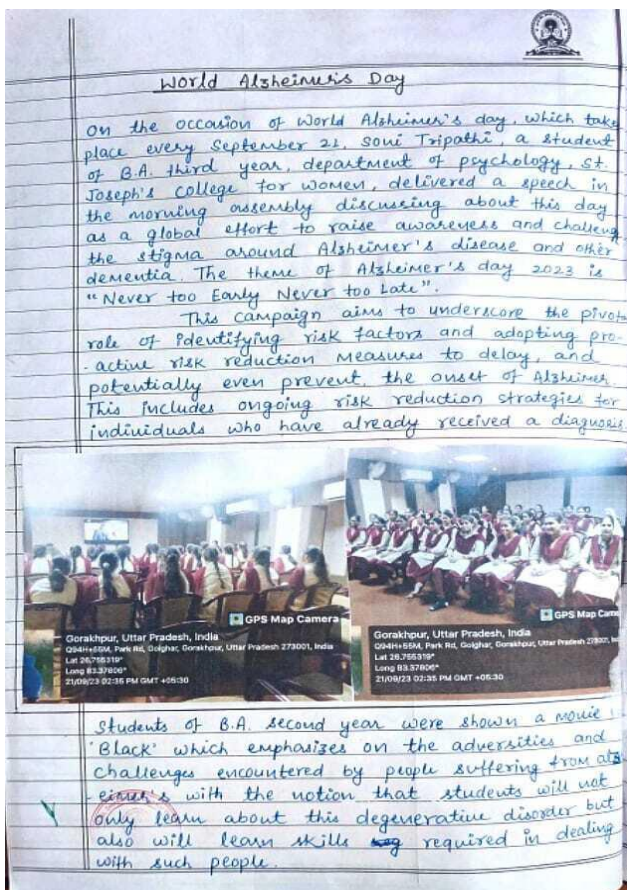 World Alzheimer's Day
On the occasion of World Alzheimer's day, which take
place every September 21, Soni Tripathi, a student
of B.A. third year, department of psychology, St.
Joseph's College for Women, delivered a speech in
the morning assembly discussing about this day
as a global effort to raise awareness and challeng
the stigma around Alzheimer's disease and other
dementia. The theme of Alzheimer's day 2023 is
"Never too Early Never too Late".
This campaign aims to underscore the pivot
role of identifying risk factors and adopting pro-
-active risk reduction measures to delay, and
potentially even prevent, the onset of Alzheimer.
This includes ongoing risk reduction strategies for
individuals who have already received a diagnosis.
GPS Map Camera
Gorakhpur, Uttar Pradesh, India
Q94H+55M, Park Rd, Golghar, Gorakhpur, Uttar Pradesh 273001, India
Lat 26.755319°
Long 83.37806°
21/09/23 02:35 PM GMT +05:30
GPS Map Came
Gorakhpur, Uttar Pradesh, India
Q94H+55M, Park Rd, Golghar, Gorakhpur, Uttar Pradesh 273001, In
Lat 26.755319°
Long 83.37806°
21/09/23 02:35 PM GMT +05:30
Students of B.A. second year were shown a movie
'Black' which emphasizes on the adversities and
challenges encountered by people suffering from alz
-eimer's with the notion that students will not
only learn about this degenerative disorder but
also will learn skills required in dealing
with such people.